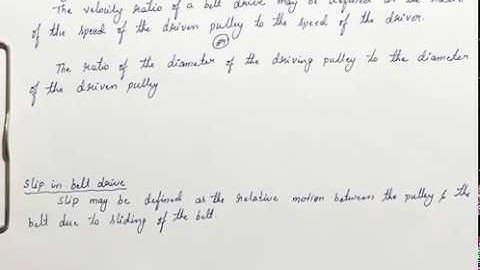 The velocity ratio of a belt drive may be defined as the
of the speed of the driven pulley to the speed of the driver.
(or)
The ratio of the diameter of the driving pulley to the diameter
of the driven pulley
Slip in belt drive
Slip may be defined as the relative motion between the pulley & the
belt due to sliding of the belt